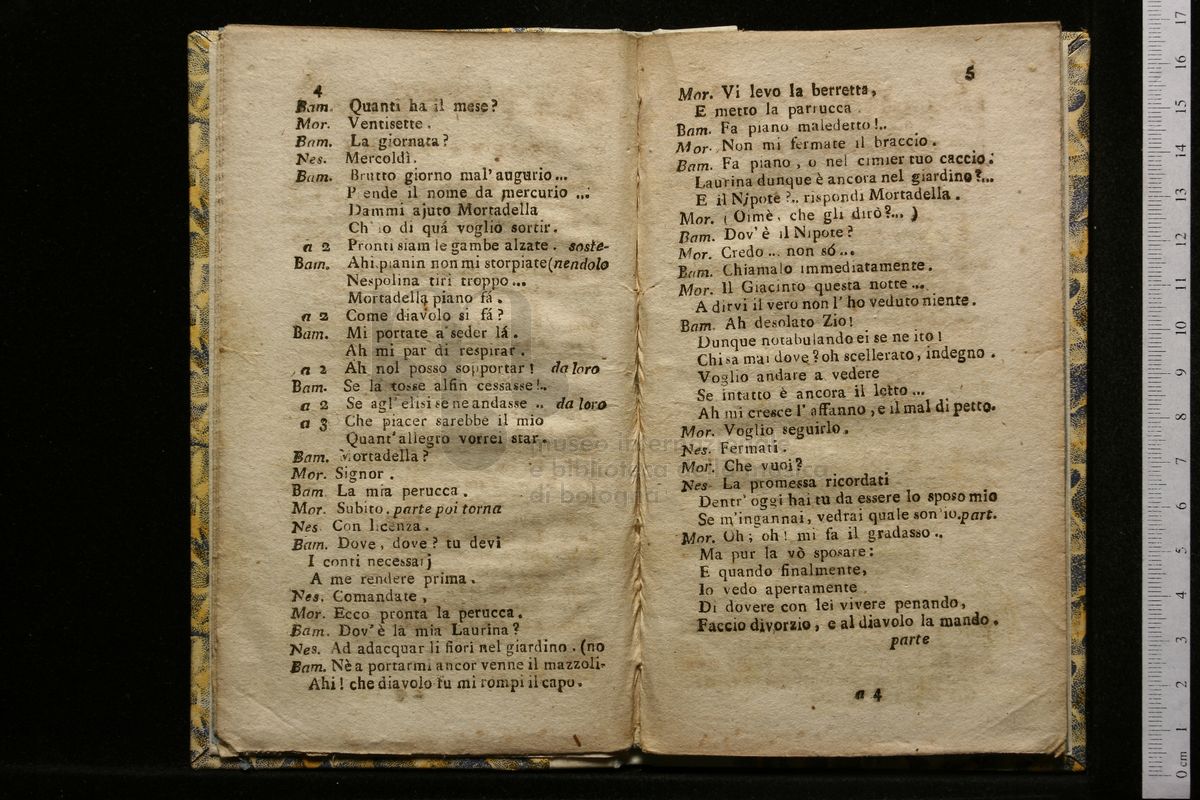 4
Bam. Quanti ha il mese?
Mor. Ventisette.
Bam. La giornata?
Nes. Mercoldì.
Bam. Brutto giorno mal' augurio...
P ende il nome da mercurio ...;
Dammi ajuto Mortadella
Ch' io di quá voglio sortir.
a 2 Pronti siam le gambe alzate. soste-
Bam. Ahi.pianin non mi storpiate (nendolo
Nespolina tiri troppo...
Mortadella piano fá.
a 2 Come diavolo si fá?
Bam. Mi portate a seder lá.
Ah mi par di respirar.
a 2 Ah nol posso sopportar! da loro
Bam. Se la tosse alfin cessasse!..
a 2 Se agl' elisi se ne andasse .. da loro
a 3 Che piacer sarebbe il mio
Quant' allegro vorrei star.
Bam. Mortadella?
Mor. Signor.
Bam. La mia perucca.
Mor. Subito. parte poi torna
Nes. Con licenza.
Bam. Dove, dove? tu devi
I conti necessarj
A me rendere prima.
Nes. Comandate,
Mor. Ecco pronta la perucca.
Bam. Dov' è la mia Laurina?
Nes. Ad adacquar li fiori nel giardino. (no
Bam. Nè a portarmi ancor venne il mazzoli-
Ahi! che diavolo tu mi rompi il capo.
5
Mor. Vi levo la berretta,
E metto la parrucca
Bam. Fa piano maledetto!..
Mor. Non mi fermate il braccio.
Bam. Fa piano, o nel cimier tuo caccio;
Laurina dunque è ancora nel giardino?...
E il Nipote?.. rispondi Mortadella.
Mor. (Oimè, che gli dirò?...)
Bam. Dov' è il Nipote?
Mor. Credo ... non só...
Bam. Chiamalo immediatamente.
Mor. Il Giacinto questa notte...
A dirvi il vero non l' ho veduto niente.
Bam. Ah desolato Zio!
Dunque notabulando ei se ne ito!
Chi sa mai dove? oh scellerato, indegno.
Voglio andare a vedere
Se intatto è ancora il letto...
Ah mi cresce l' affanno, e il mal di petto.
Mor. Voglio seguirlo.
Nes. Fermati.
Mor. Che vuoi?
Nes. La promessa ricordati
Dentr' oggi hai tu da essere lo sposo mio
Se m'ingannai, vedrai quale son' io. part.
Mor. Oh; oh! mi fa il gradasso..
Ma pur la vò sposare:
E quando finalmente,
Io vedo apertamente
Di dovere con lei vivere penando,
Faccio divorzio, e al diavolo la mando.
parte
a 4
museo internazionale
e biblioteca della musica
di bologna